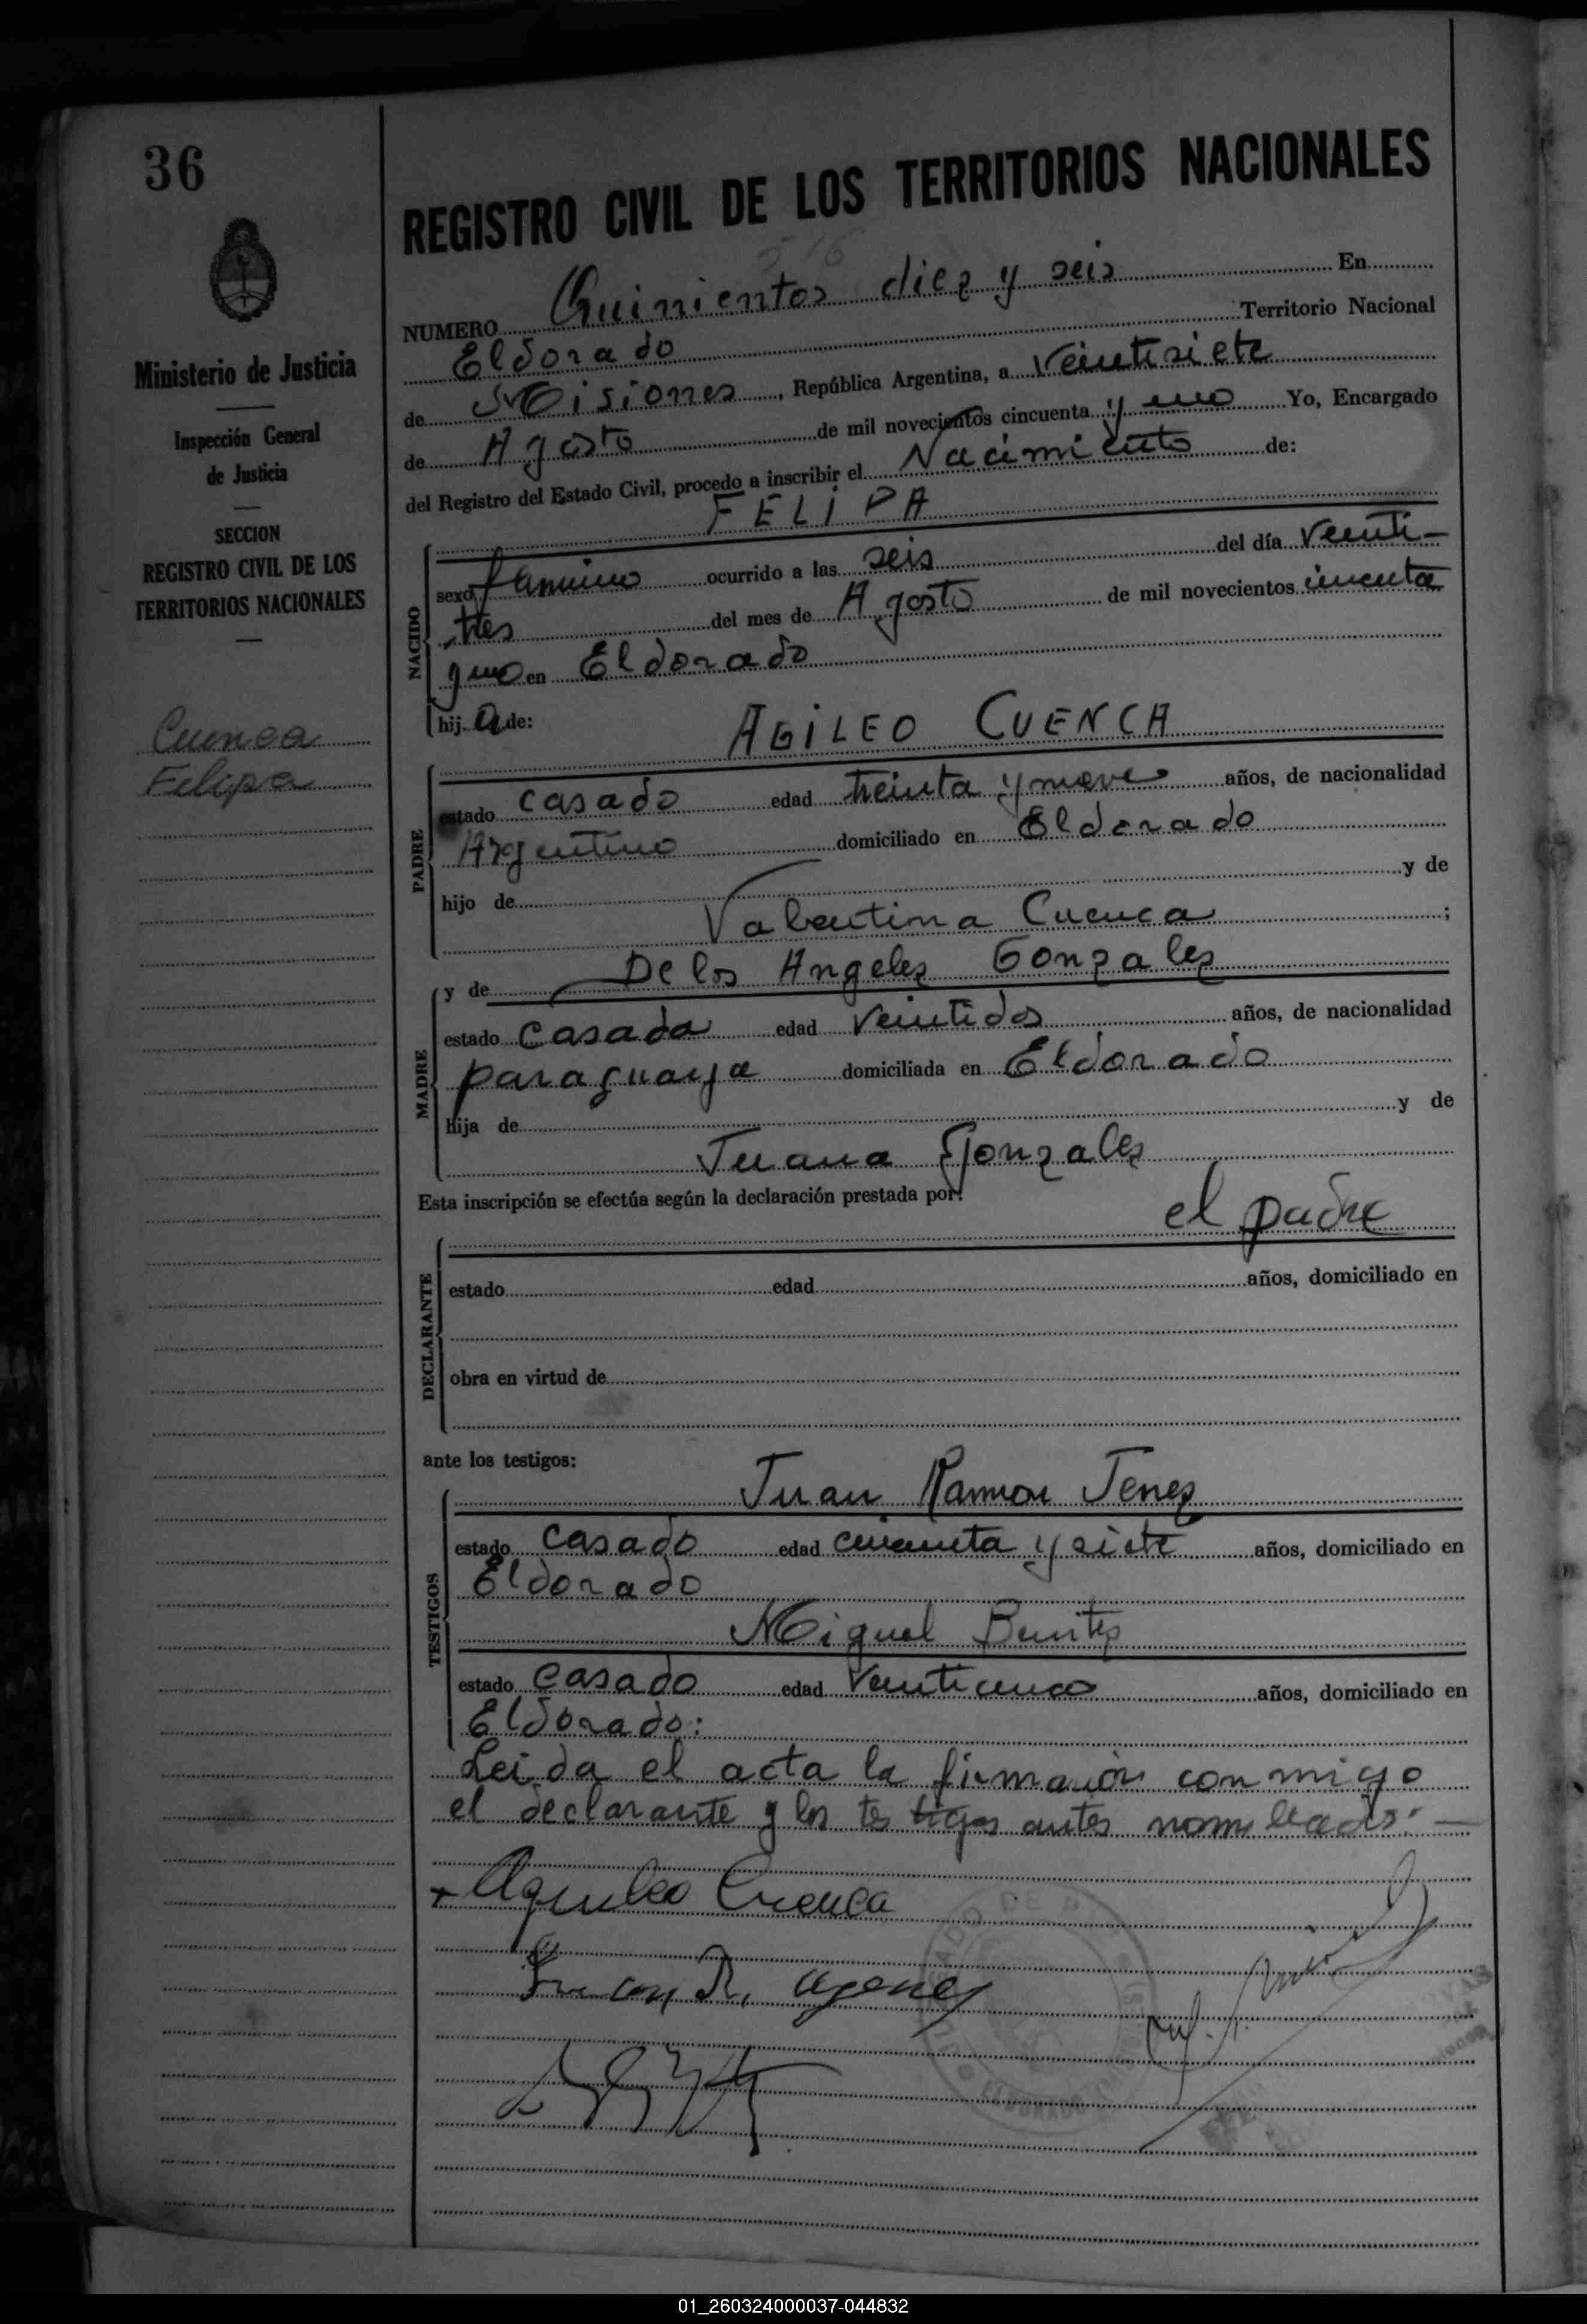 36
Ministerio de Justicia
Inspección General
de Justicia
SECCION
REGISTRO CIVIL DE LOS
TERRITORIOS NACIONALES
Cuenca
Felipa
REGISTRO CIVIL DE LOS TERRITORIOS NACIONALES
516
NUMERO Quinientos diez y seis En
Eldorado Territorio Nacional
de Misiones, República Argentina, a veintisiete
de Agosto de mil novecientos cincuenta y uno Yo, Encargado
del Registro del Estado Civil, procedo a inscribir el Nacimiento de:
FELIPA
NACIDO
sexo famenino ocurrido a las seis del día veinti-
tres del mes de Agosto de mil novecientos cincuenta
y uno en Eldorado
hij a de: AGILEO CUENCA
PADRE
estado casado edad treinta y nueve años, de nacionalidad
Argentino domiciliado en Eldorado
hijo de y de
Valentina Cuenca ;
y de De los Angeles Gonzalez
MADRE
estado casada edad veintidos años, de nacionalidad
paraguaya domiciliada en Eldorado
hija de y de
Juana Gonzalez
Esta inscripción se efectúa según la declaración prestada por:
el padre
DECLARANTE
estado edad años, domiciliado en
obra en virtud de
ante los testigos:
Juan Ramon Jenez
TESTIGOS
estado casado edad cincuenta y siete años, domiciliado en
Eldorado
Miguel Benitez
estado casado edad veinticinco años, domiciliado en
Eldorado:
Leida el acta la firmaron conmigo
el declarante y los testigos antes nombrados:
Aquileo Cuenca
Juan R.
ELDORADO
01_260324000037-044832